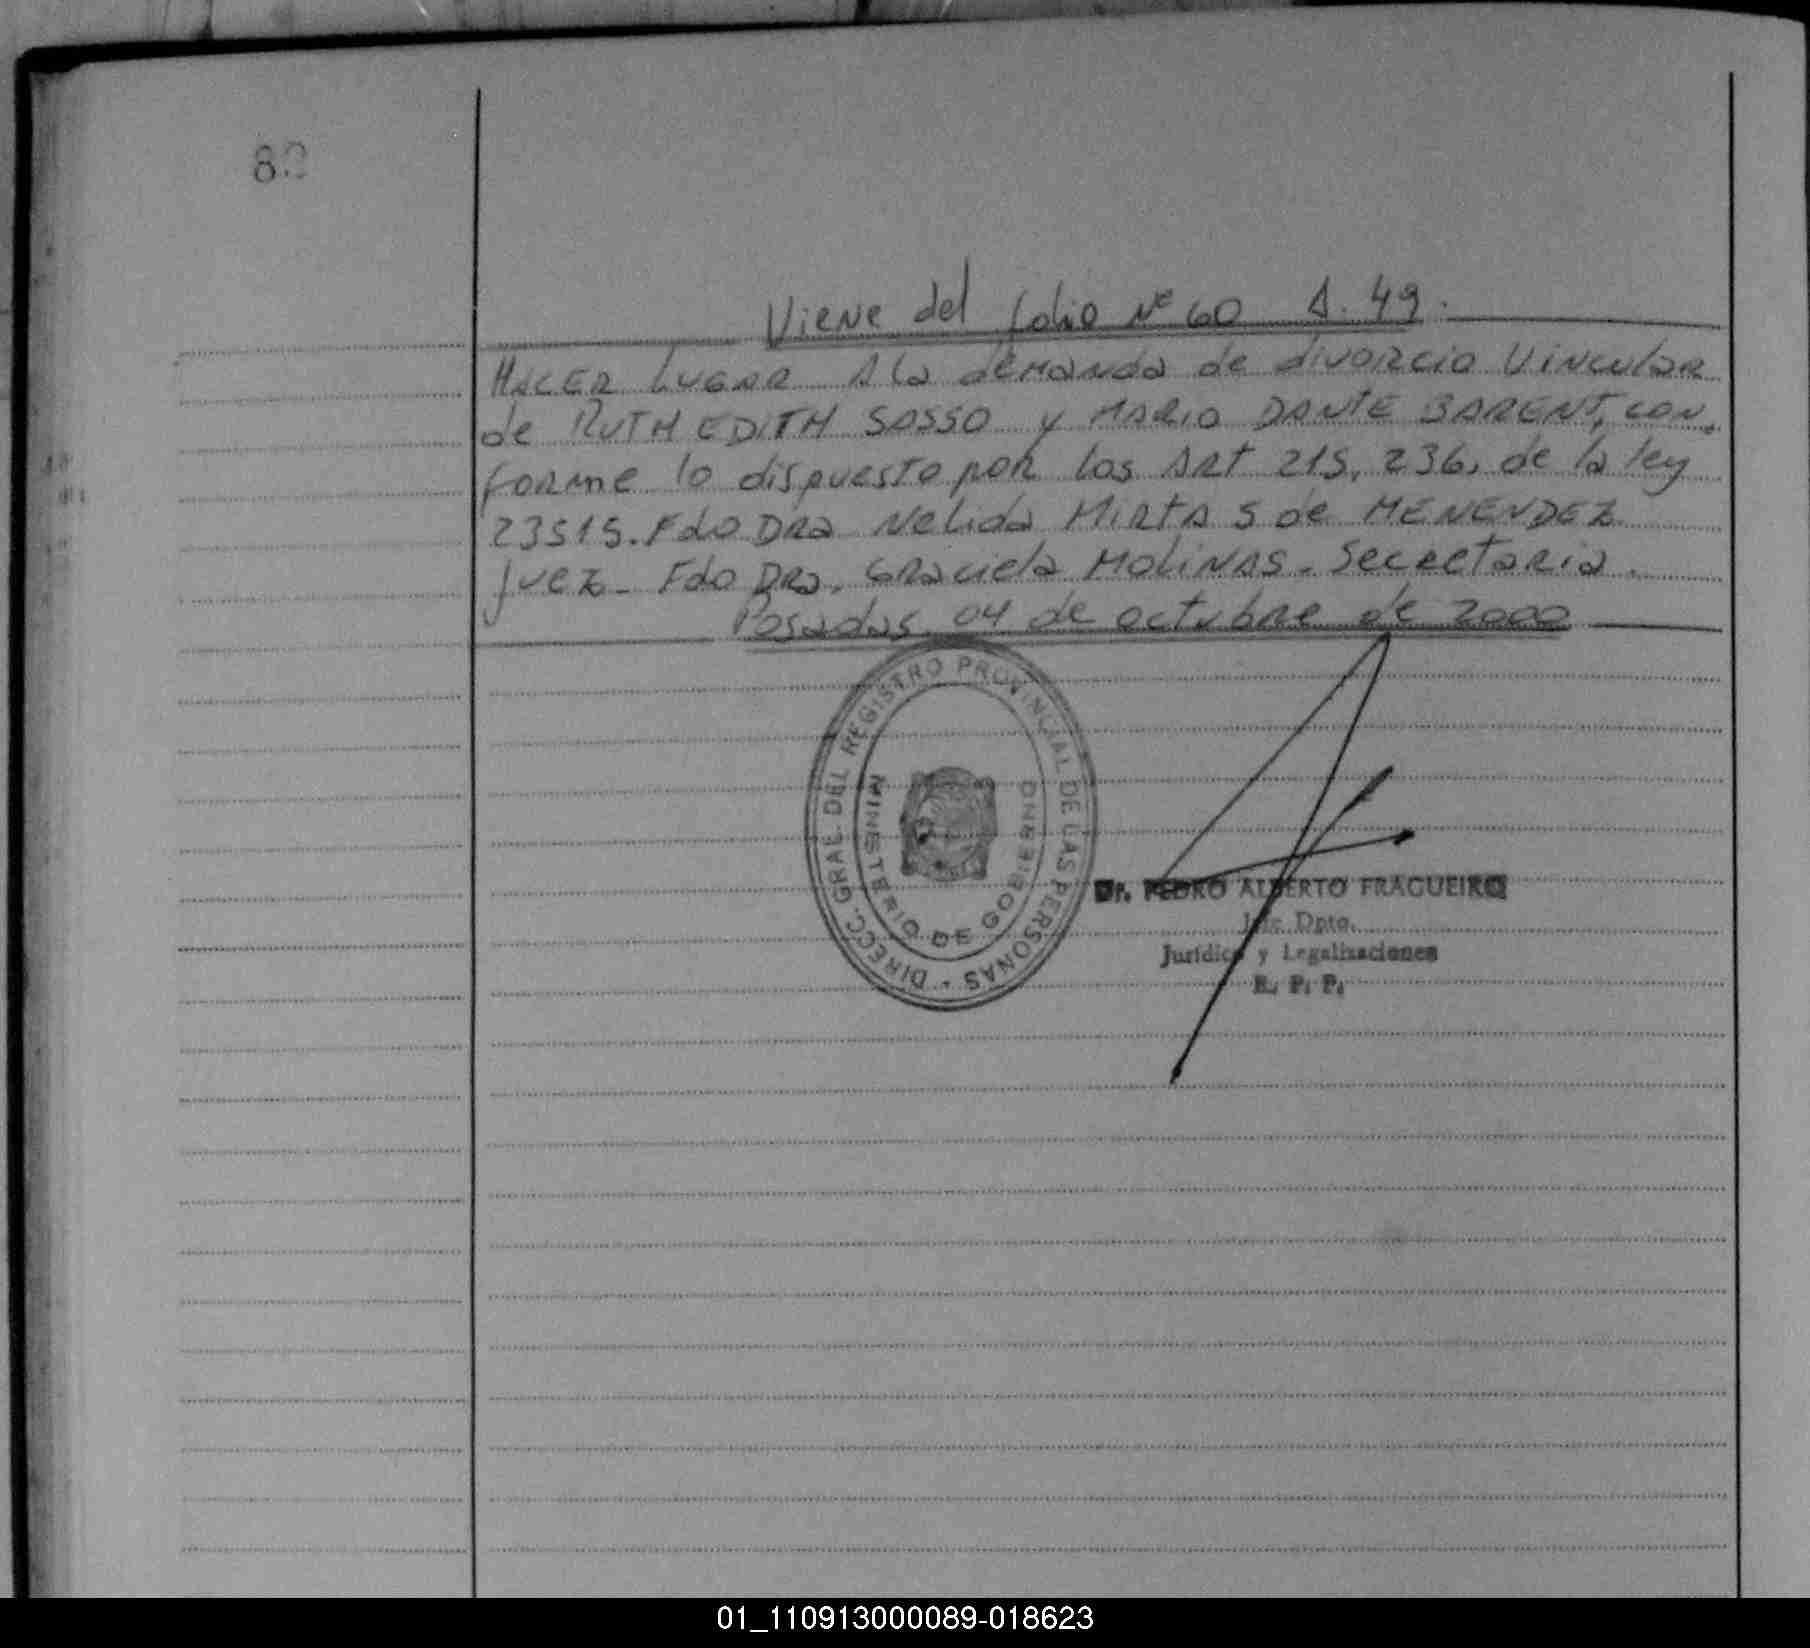 82
Viene del folio Nº 60 A. 49.
HACER LUGAR A la demanda de divorcio Vincular
de RUTH EDITH SASSO y MARIO DANTE BARENT, con-
forme lo dispuesto por los Art 215, 236, de la ley
23515. Fdo DRA Nelida MIRTA S de MENENDEZ
juez - Fdo Dra. Graciela MOLINAS - Secretaria.
Posadas, 04 de octubre de 2000
DIRECC. GRAL. DEL REGISTRO PROVINCIAL DE LAS PERSONAS -
MINISTERIO DE GOBIERNO
Dr. PEDRO ALBERTO FRAGUEIRO
Dpto.
Jurídico y Legalizaciones
R. P. P.
01_110913000089-018623